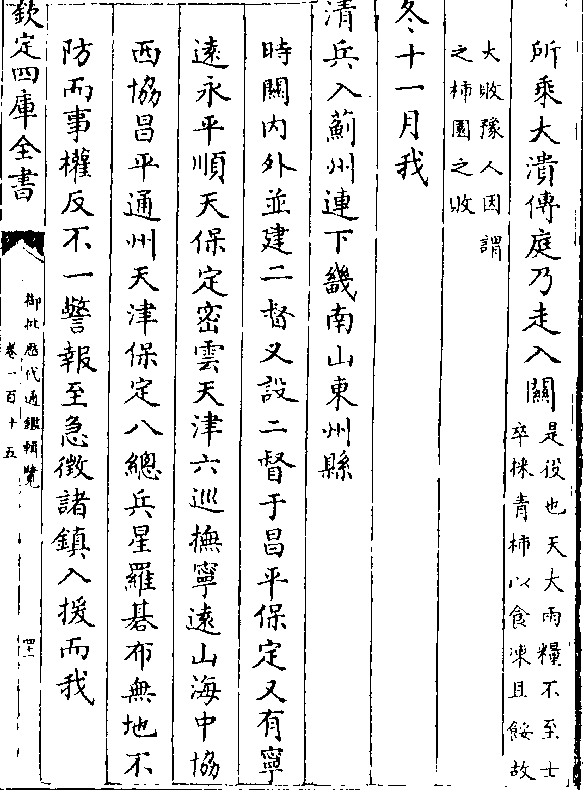 所乘大潰傳庭乃走入關是役也天大雨糧不至士
卒採青柿以食凍且餒故
大敗豫人因謂
之柿園之敗
冬十一月我
清兵入薊州連下畿南山東州縣
時關内外並建二督又設二督于昌平保定又有寧
遠永平順天保定密雲天津六巡撫寧遠山海中協
西協昌平通州天津保定八總兵星羅碁布無地不
防而事權反不一警報至急徴諸鎮入援而我
欽定四庫全書
御批歷代通鑑輯覽
卷一百十五